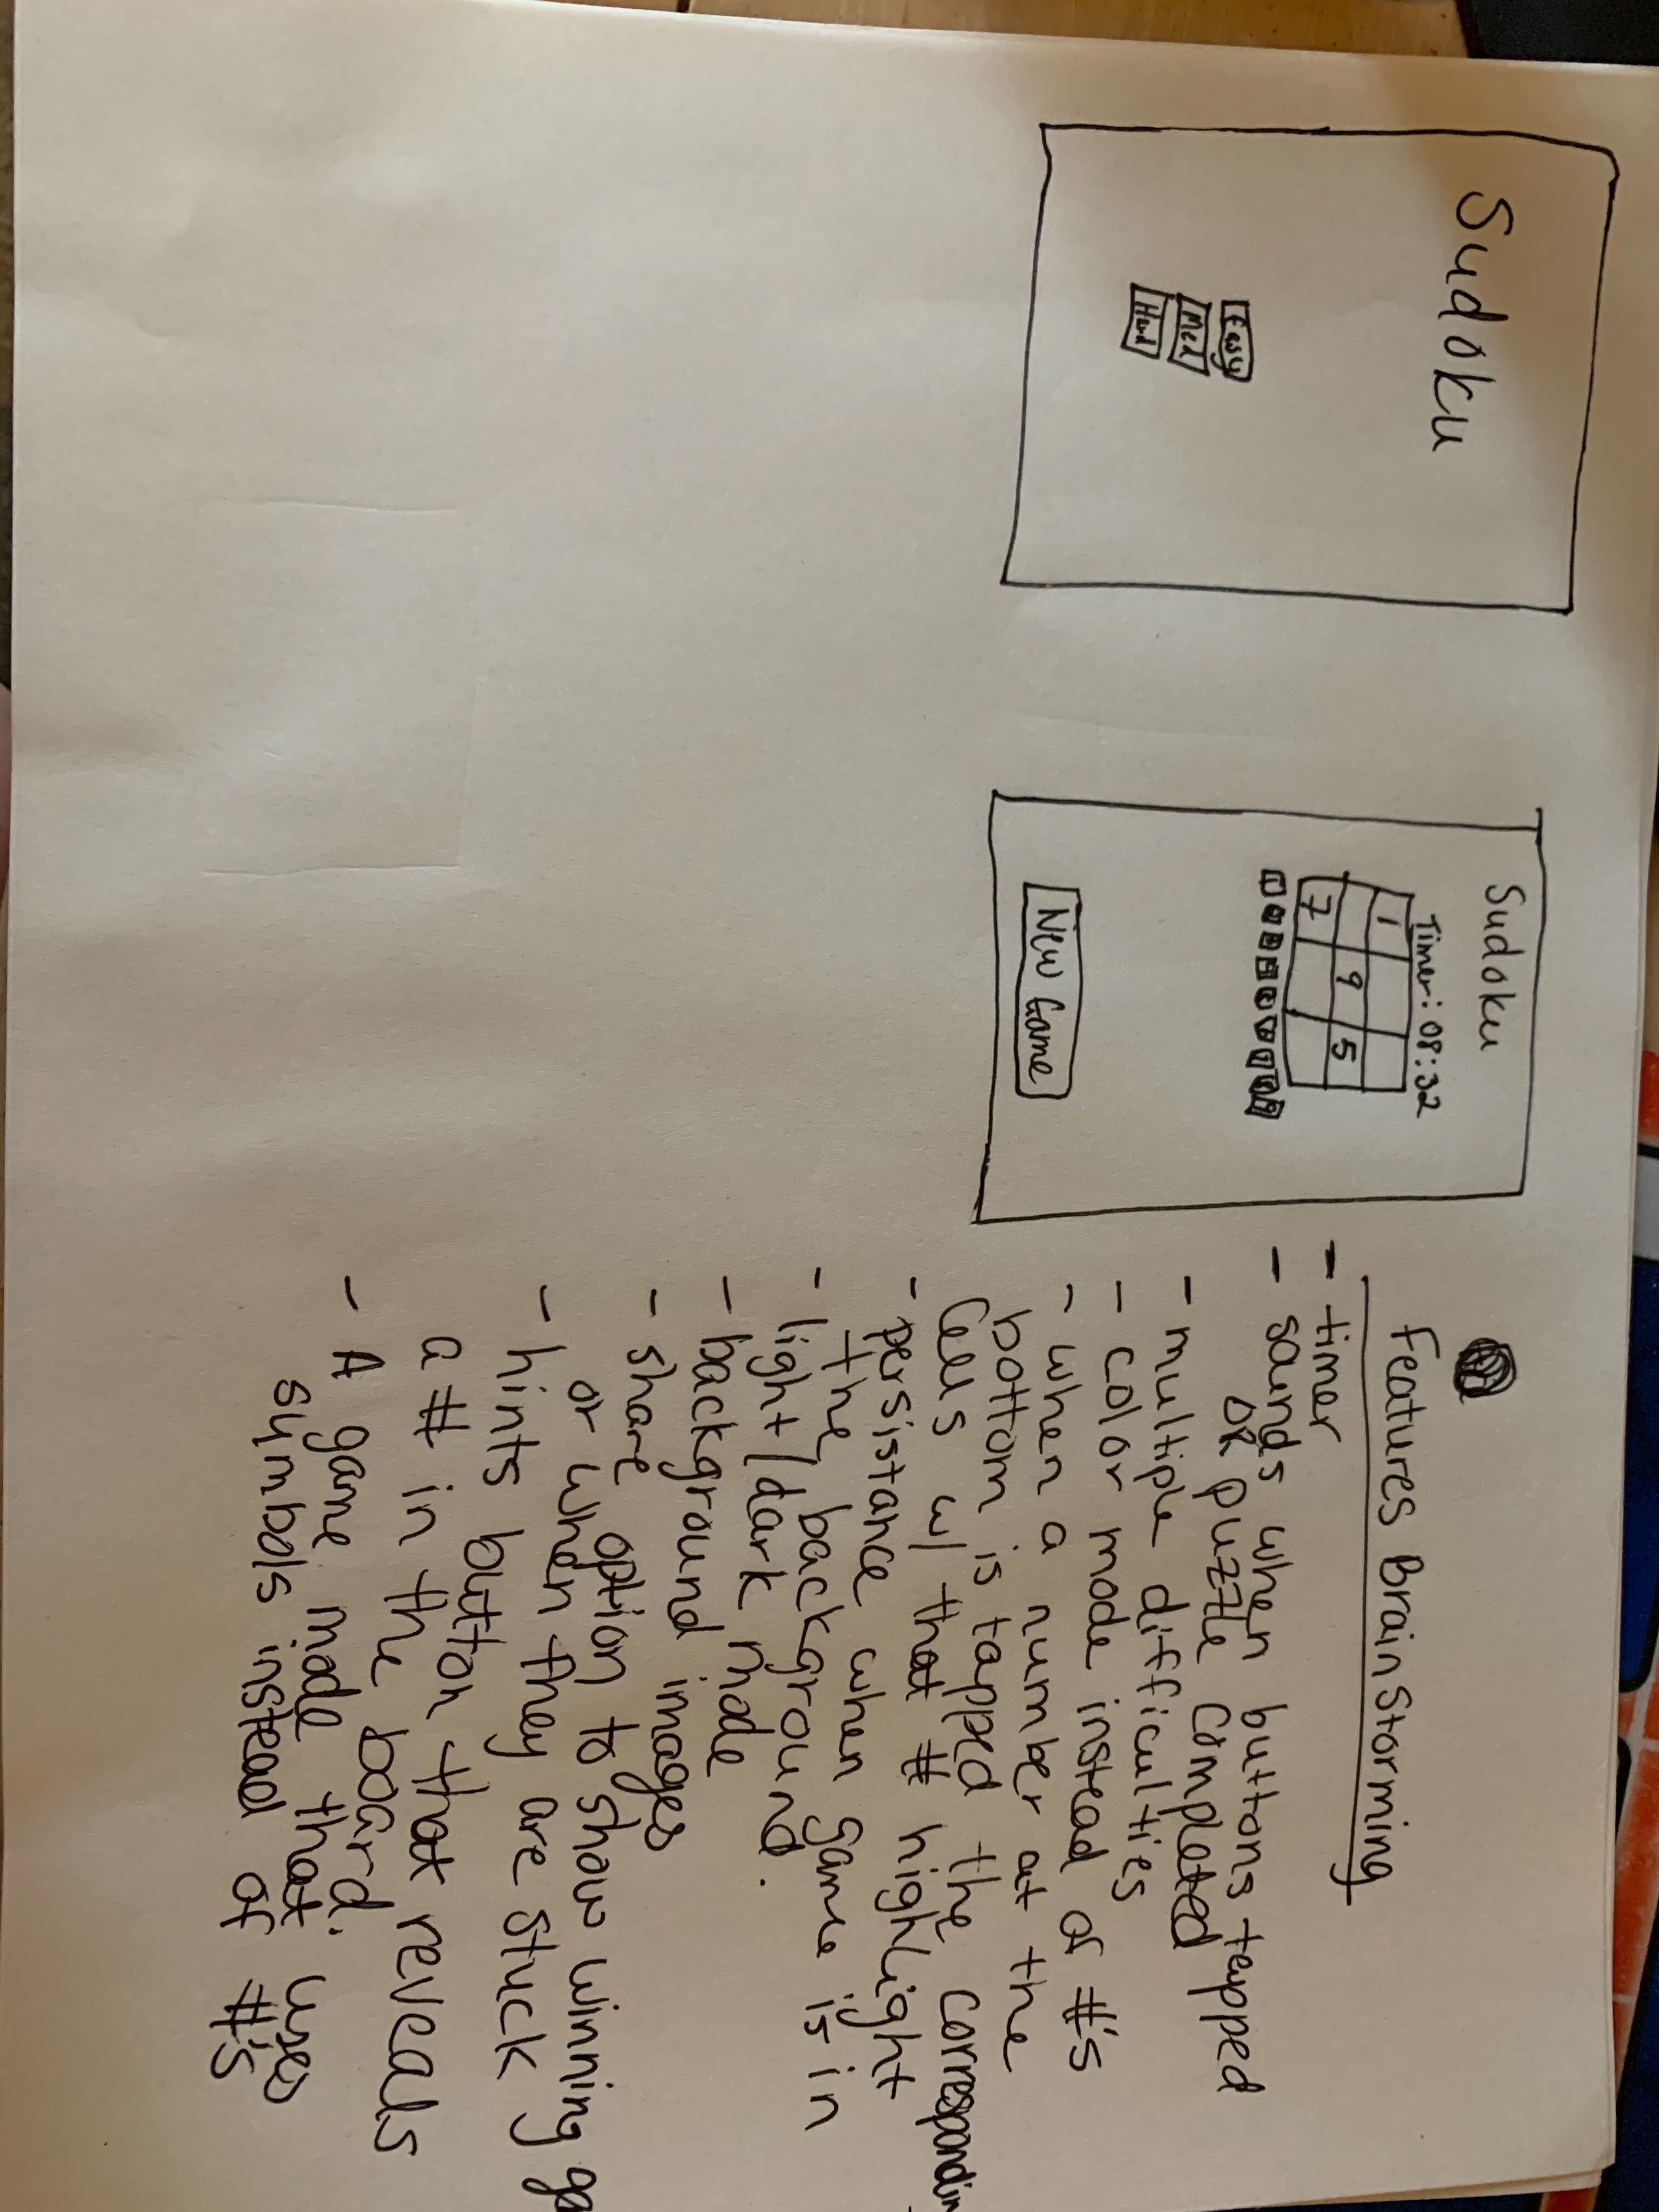 Sudoku
Easy
Med
Hard
Sudoku
Timer: 08:32
1
9 5
7
New Game
Features Brainstorming
- timer
- sounds when buttons tapped
or puzzle completed
- multiple difficulties
- color mode instead of #'s
- when a number at the
bottom is tapped the
cells w/ that # highlight
- persistance when game is in
the background.
- light/dark mode
- background images
- share option to show winning
or when they are stuck
- hints button that reveals
a # in the board.
- A game mode that uses
symbols instead of #'s